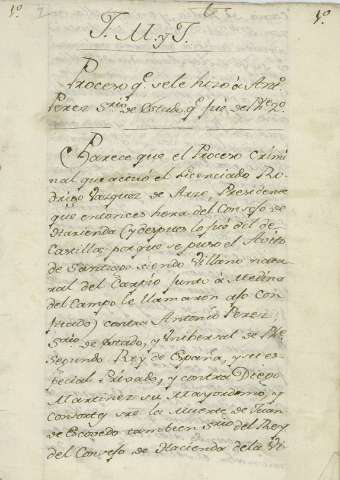 1º 1º
J. M. y J.
Proceso q.e se le hizo à Ant.º
Perez S.rio de Estado q.e fué de Phe 2.º
Parece que el Proceso Crimi
nal que actuó el Licenciado Ro
drigo Vazquez de Arze, Presidente
que entonces hera del Consejo de
Hacienda (y despues lo fué del de
Castilla, porque se puso el Avito
de Santiago siendo Villano natu
ral del Carpio junto à Medina
del Campo le llamaron Ajo con
fitado) contra Antonio Perez,
S.rio de Estado, y Universal de Phe
Segundo Rey de España, y su es
pecial Privado, y contra Diego
Martinez su Mayordomo, y
Consortes sre la Muerte de Juan
de Escovedo tambien S.rio del Rey
del Consejo de Hacienda de la